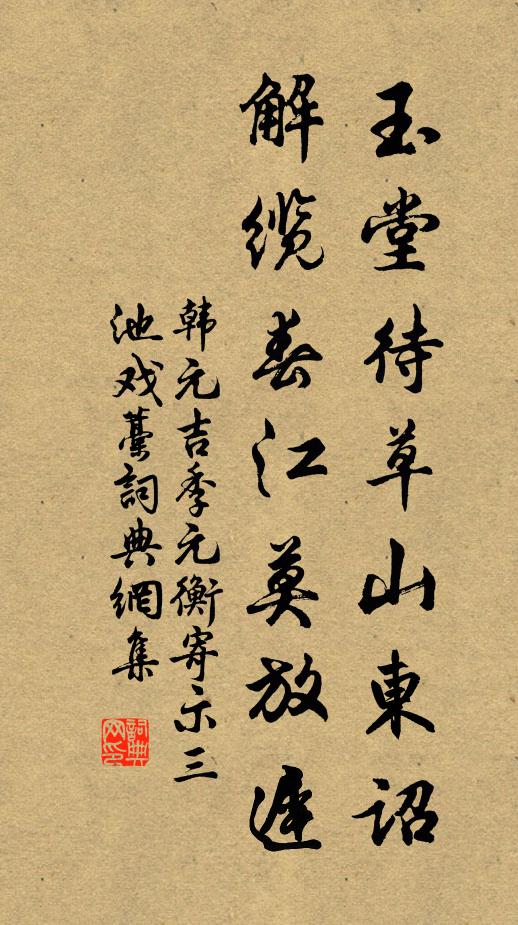 玉堂待草山東詔
解纜春江莫放遲
韩元吉季元衡寄示三
池戏藁詞典網集
詞典网印